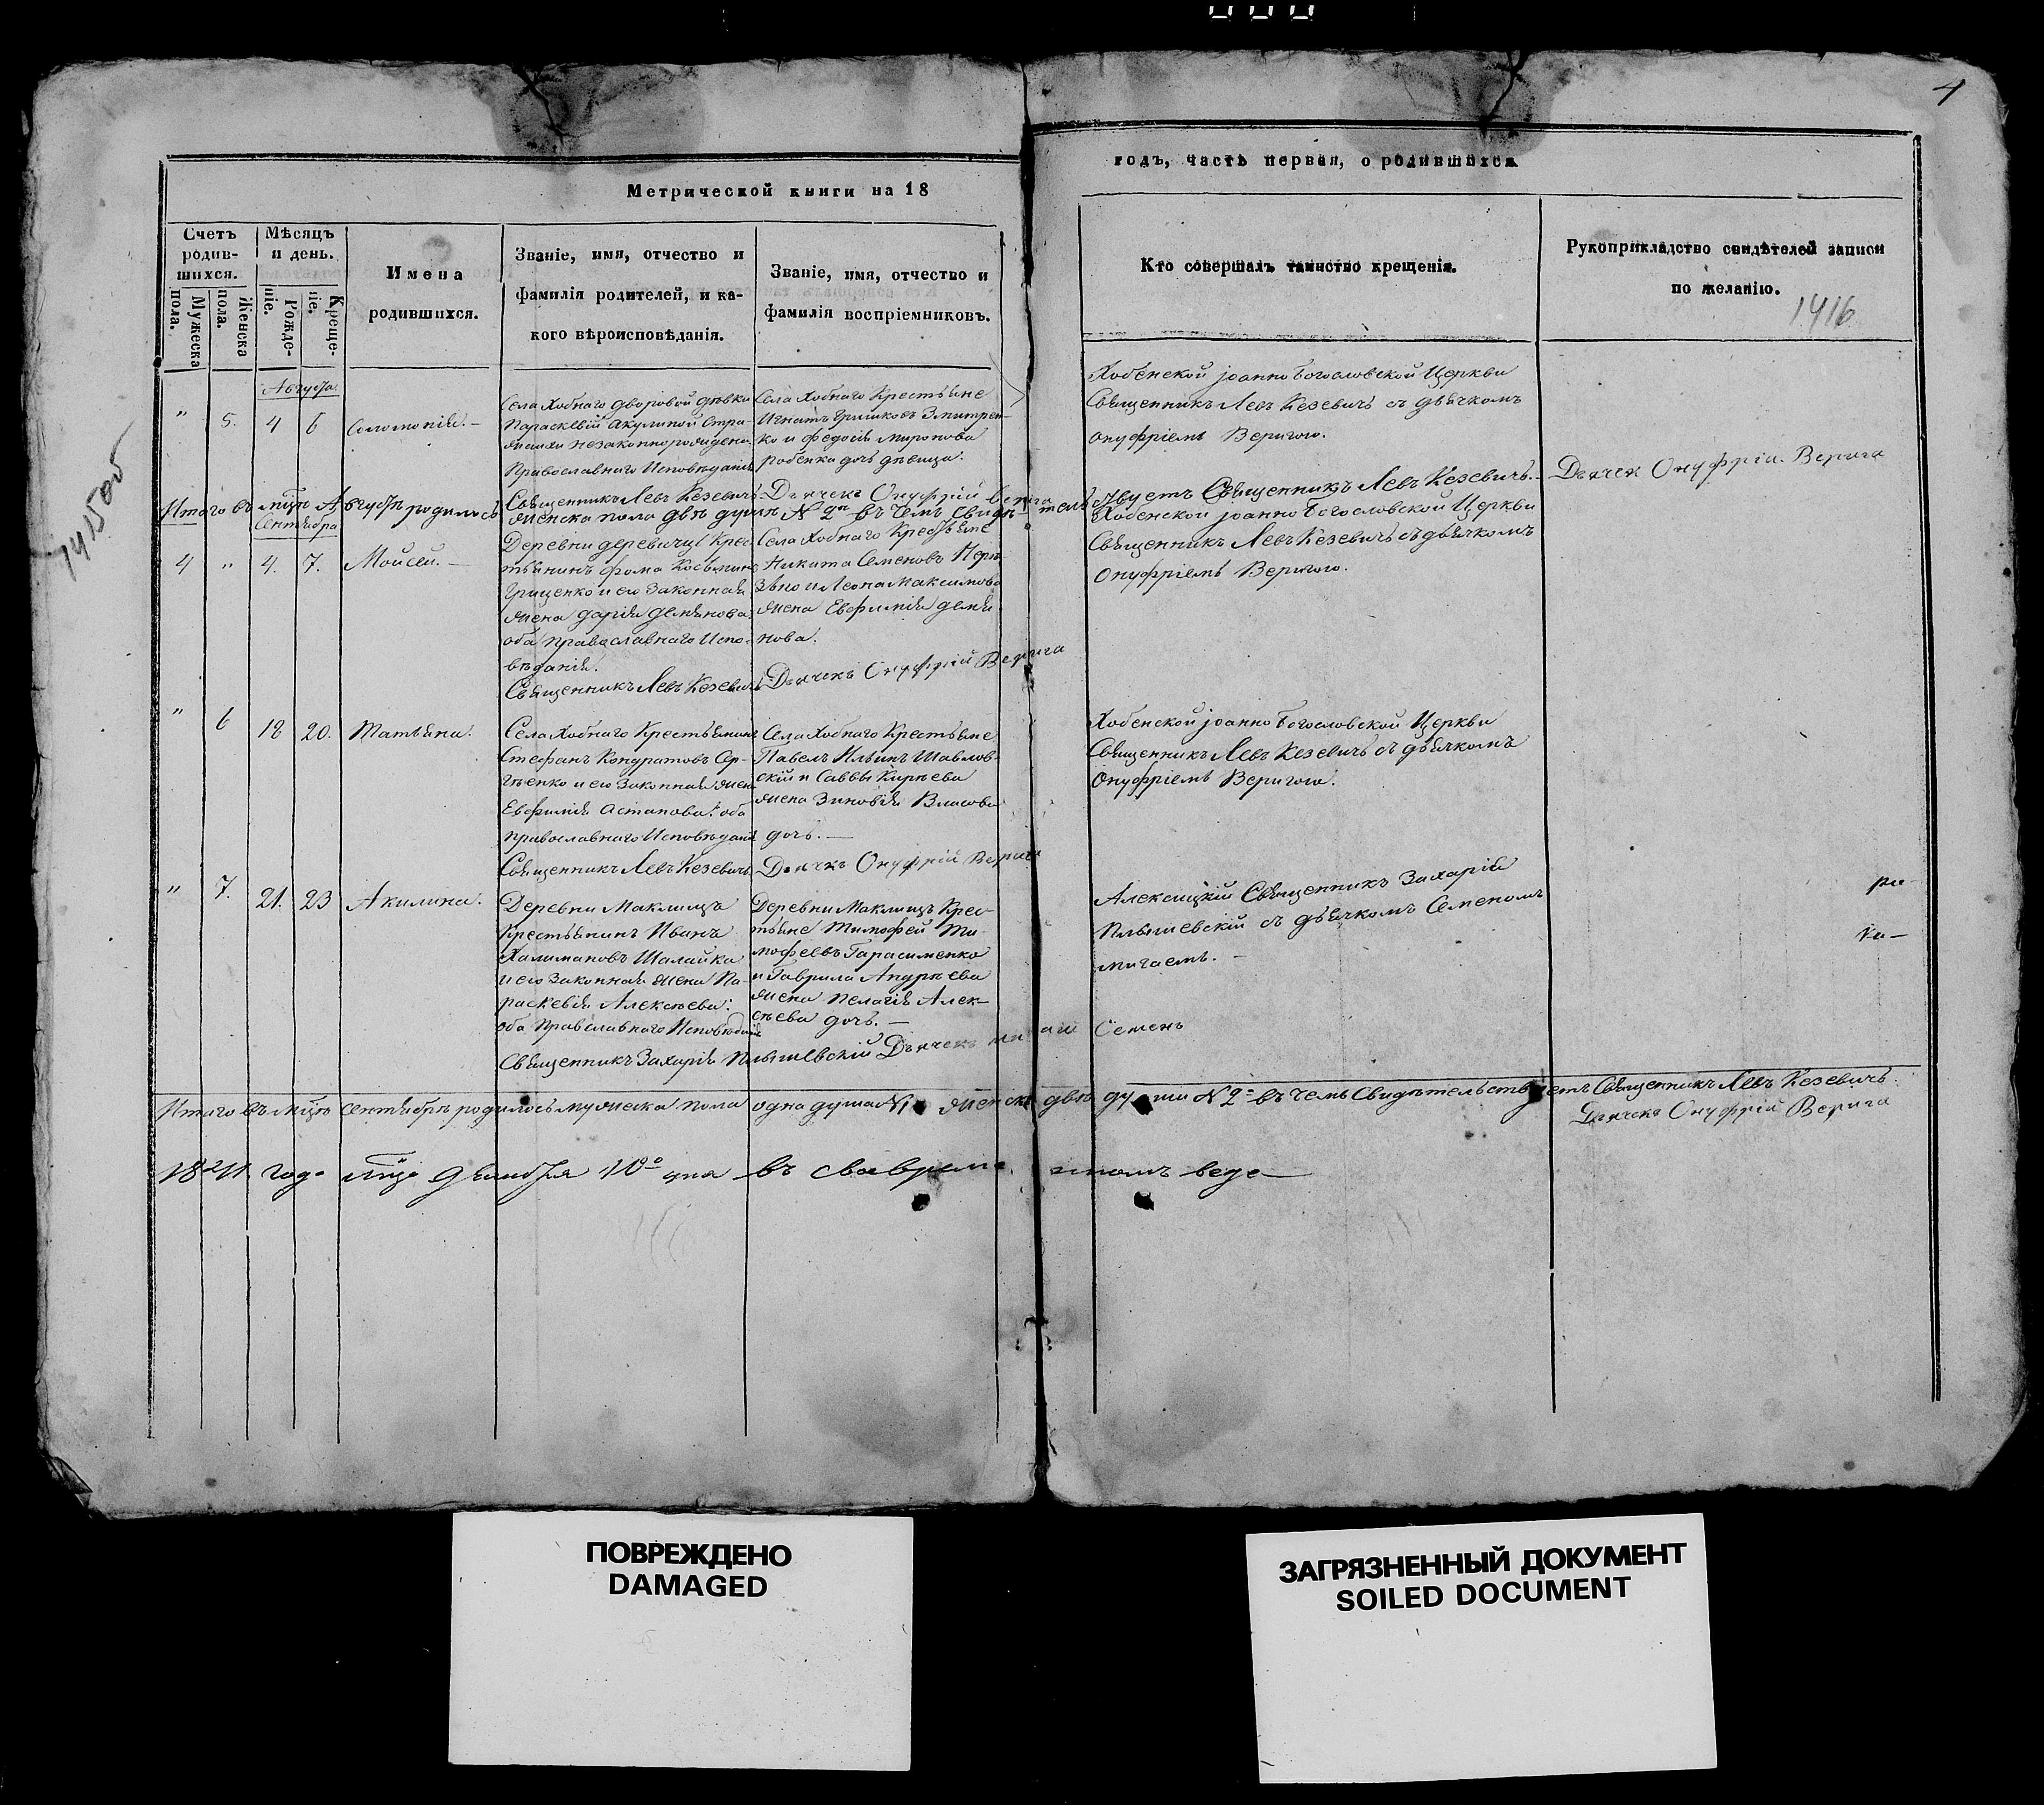 4
Метрической книги на 18
годъ, часть первая, о родившихся
Счетъ родив-
шихся.
Мужеска пола.
Женска пола.
Мѣсяцъ и день.
Рожде-
ніе.
Креще-
ніе.
Имена
родившихся.
Званіе, имя, отчество и
фамилія родителей, и ка-
кого вѣроисповѣданія.
Званіе, имя, отчество и
фамилія воспріемниковъ.
Кто совершалъ таинство крещенія.
Рукоприкладство свидѣтелей записи
по желанію.
1416
Августа
" 5. 4 6 Соломонія. —
Села Хобнаго дворовой дѣвки
Параскевіи Акулиной
незаконнорожденна
Православнаго Исповѣданія
Священникъ Левъ Кезевичъ
Села Хобнаго Крестьяне
Игнатъ Гришковъ Змитрен-
ко и Федосія Миронова
дочь дѣвица.
Дьячекъ Онуфрій Верига
Хобенской Іоанно Богословской Церкви
Священникъ Левъ Кезевичъ съ дьячкомъ
Онуфріемъ Веригою.
Итого въ мцѣ Августѣ родилось женска пола двѣ души N 2 въ чемъ свидѣтельствуетъ Священникъ Левъ Кезевичъ.
Дьячек Онуфрій Верига
Сентября
4 " 4. 7. Мойсей. —
Деревни Деревичь Крес-
тьянинъ Фома Косьминъ
Грищенко и его законная
жена Дарія Демянова:
оба православнаго Испо-
вѣданія.
Священникъ Левъ Кезевичъ
Села Хобнаго Крестьяне
Никита Семеновъ
и Леона Максимова
жена Евфимія Демя
нова.
Дьячекъ Онуфрій Верига
Хобенской Іоанно Богословской Церкви
Священникъ Левъ Кезевичъ съ дьячкомъ
Онуфріемъ Веригою.
" 6 18 20. Татьяна.
Села Хобнаго Крестьянинъ
Стефанъ Кондратовъ Сер-
гѣенко и его законная жена
Евфимія Астапова: оба
православнаго Исповѣданія
Священникъ Левъ Кезевичъ
Села Хобнаго Крестьяне
Павелъ Ильинъ Шавлов-
скій и Саввы Кирѣева
жена Зиновія Власова
дочь. —
Дьячкъ Онуфрій Верига
Хобенской Іоанно Богословской Церкви
Священникъ Левъ Кезевичъ съ дьячкомъ
Онуфріемъ Веригою.
" 7. 21. 23 Акилина.
Деревни Маклищъ
Крестьянинъ Иванъ
Халимановъ Шалайка
и его законная жена Па-
раскевія Алексѣева:
оба православнаго Исповѣданія
Священникъ Захарія
Деревни Маклищъ Крес-
тьяне Тимофей Ти-
мофеевъ Гарасименко
и Гаврила Андрѣева
жена Пелагія Алек-
сѣева дочь. —
Дьячекъ
Семенъ
Священникъ Захарій
съ дьячкомъ Семеномъ
Мигаемъ. —
ра-
ка—
Итого въ мцѣ Сентябрѣ родилось мужеска пола одна душа N 1 женска двѣ души N 2 въ чемъ Свидѣтельствуетъ Священникъ Левъ Кезевичъ.
Дьячекъ Онуфрій Верига
года мца
ПОВРЕЖДЕНО
DAMAGED
ЗАГРЯЗНЕННЫЙ ДОКУМЕНТ
SOILED DOCUMENT